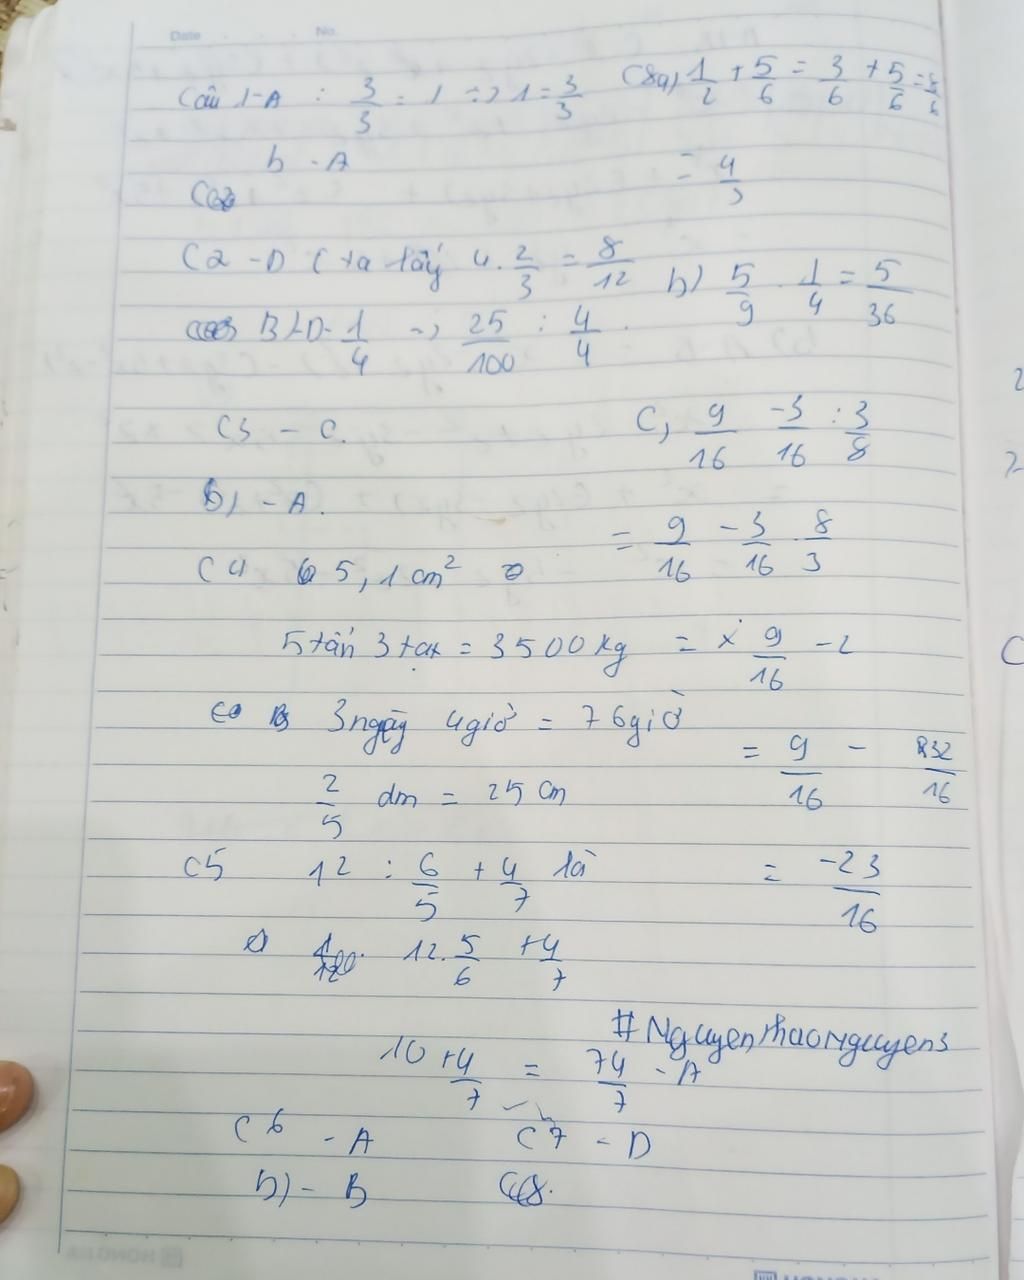 Date No.
Câu 1-A : 3/3 = 1 => 1 = 3/3
b - A
C2 - D ( ta lấy 4. 2/3 = 8/12
B) D - 1/4 -> 25/100 : 4/4
C3 - C.
b) - A.
C4 5,1 cm²
5 tấn 3 tạ = 3500 kg
3 ngày 4 giờ = 76 giờ
2/5 dm = 25 cm
C5 12 : 6/5 + 4/7 là
12. 5/6 + 4/7
10 + 4/7 = 74/7 - A
C6 - A C7 - D
b) - B C8.
C8a) 1/2 + 5/6 = 3/6 + 5/6 = 8/6
= 4/3
b) 5/9 . 1/4 = 5/36
C, 9/16 - 3/16 : 3/8
= 9/16 - 3/16 . 8/3
= 9/16 - 2
= 9/16 - 32/16
= -23/16
#NguyenThaoNguyen3